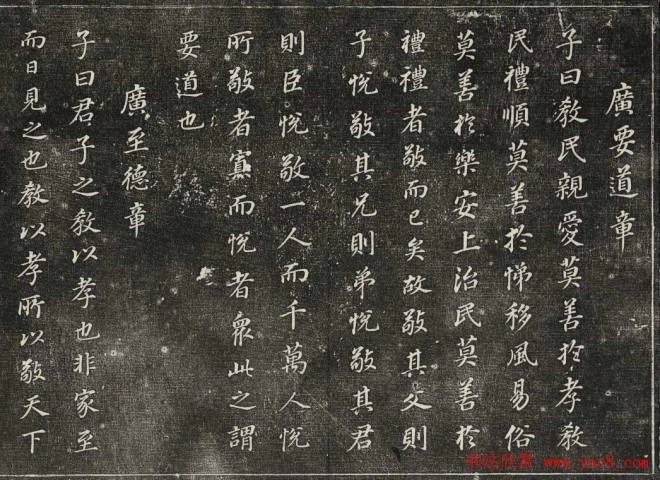 廣要道章
子曰教民親愛莫善於孝教
民禮順莫善於悌移風易俗
莫善於樂安上治民莫善於
禮禮者敬而已矣故敬其父則
子悅敬其兄則弟悅敬其君
則臣悅敬一人而千萬人悅
所敬者寡而悅者衆此之謂
要道也
廣至德章
子曰君子之教以孝也非家至
而日見之也教以孝所以敬天下
书法欣赏 www.yac8.com